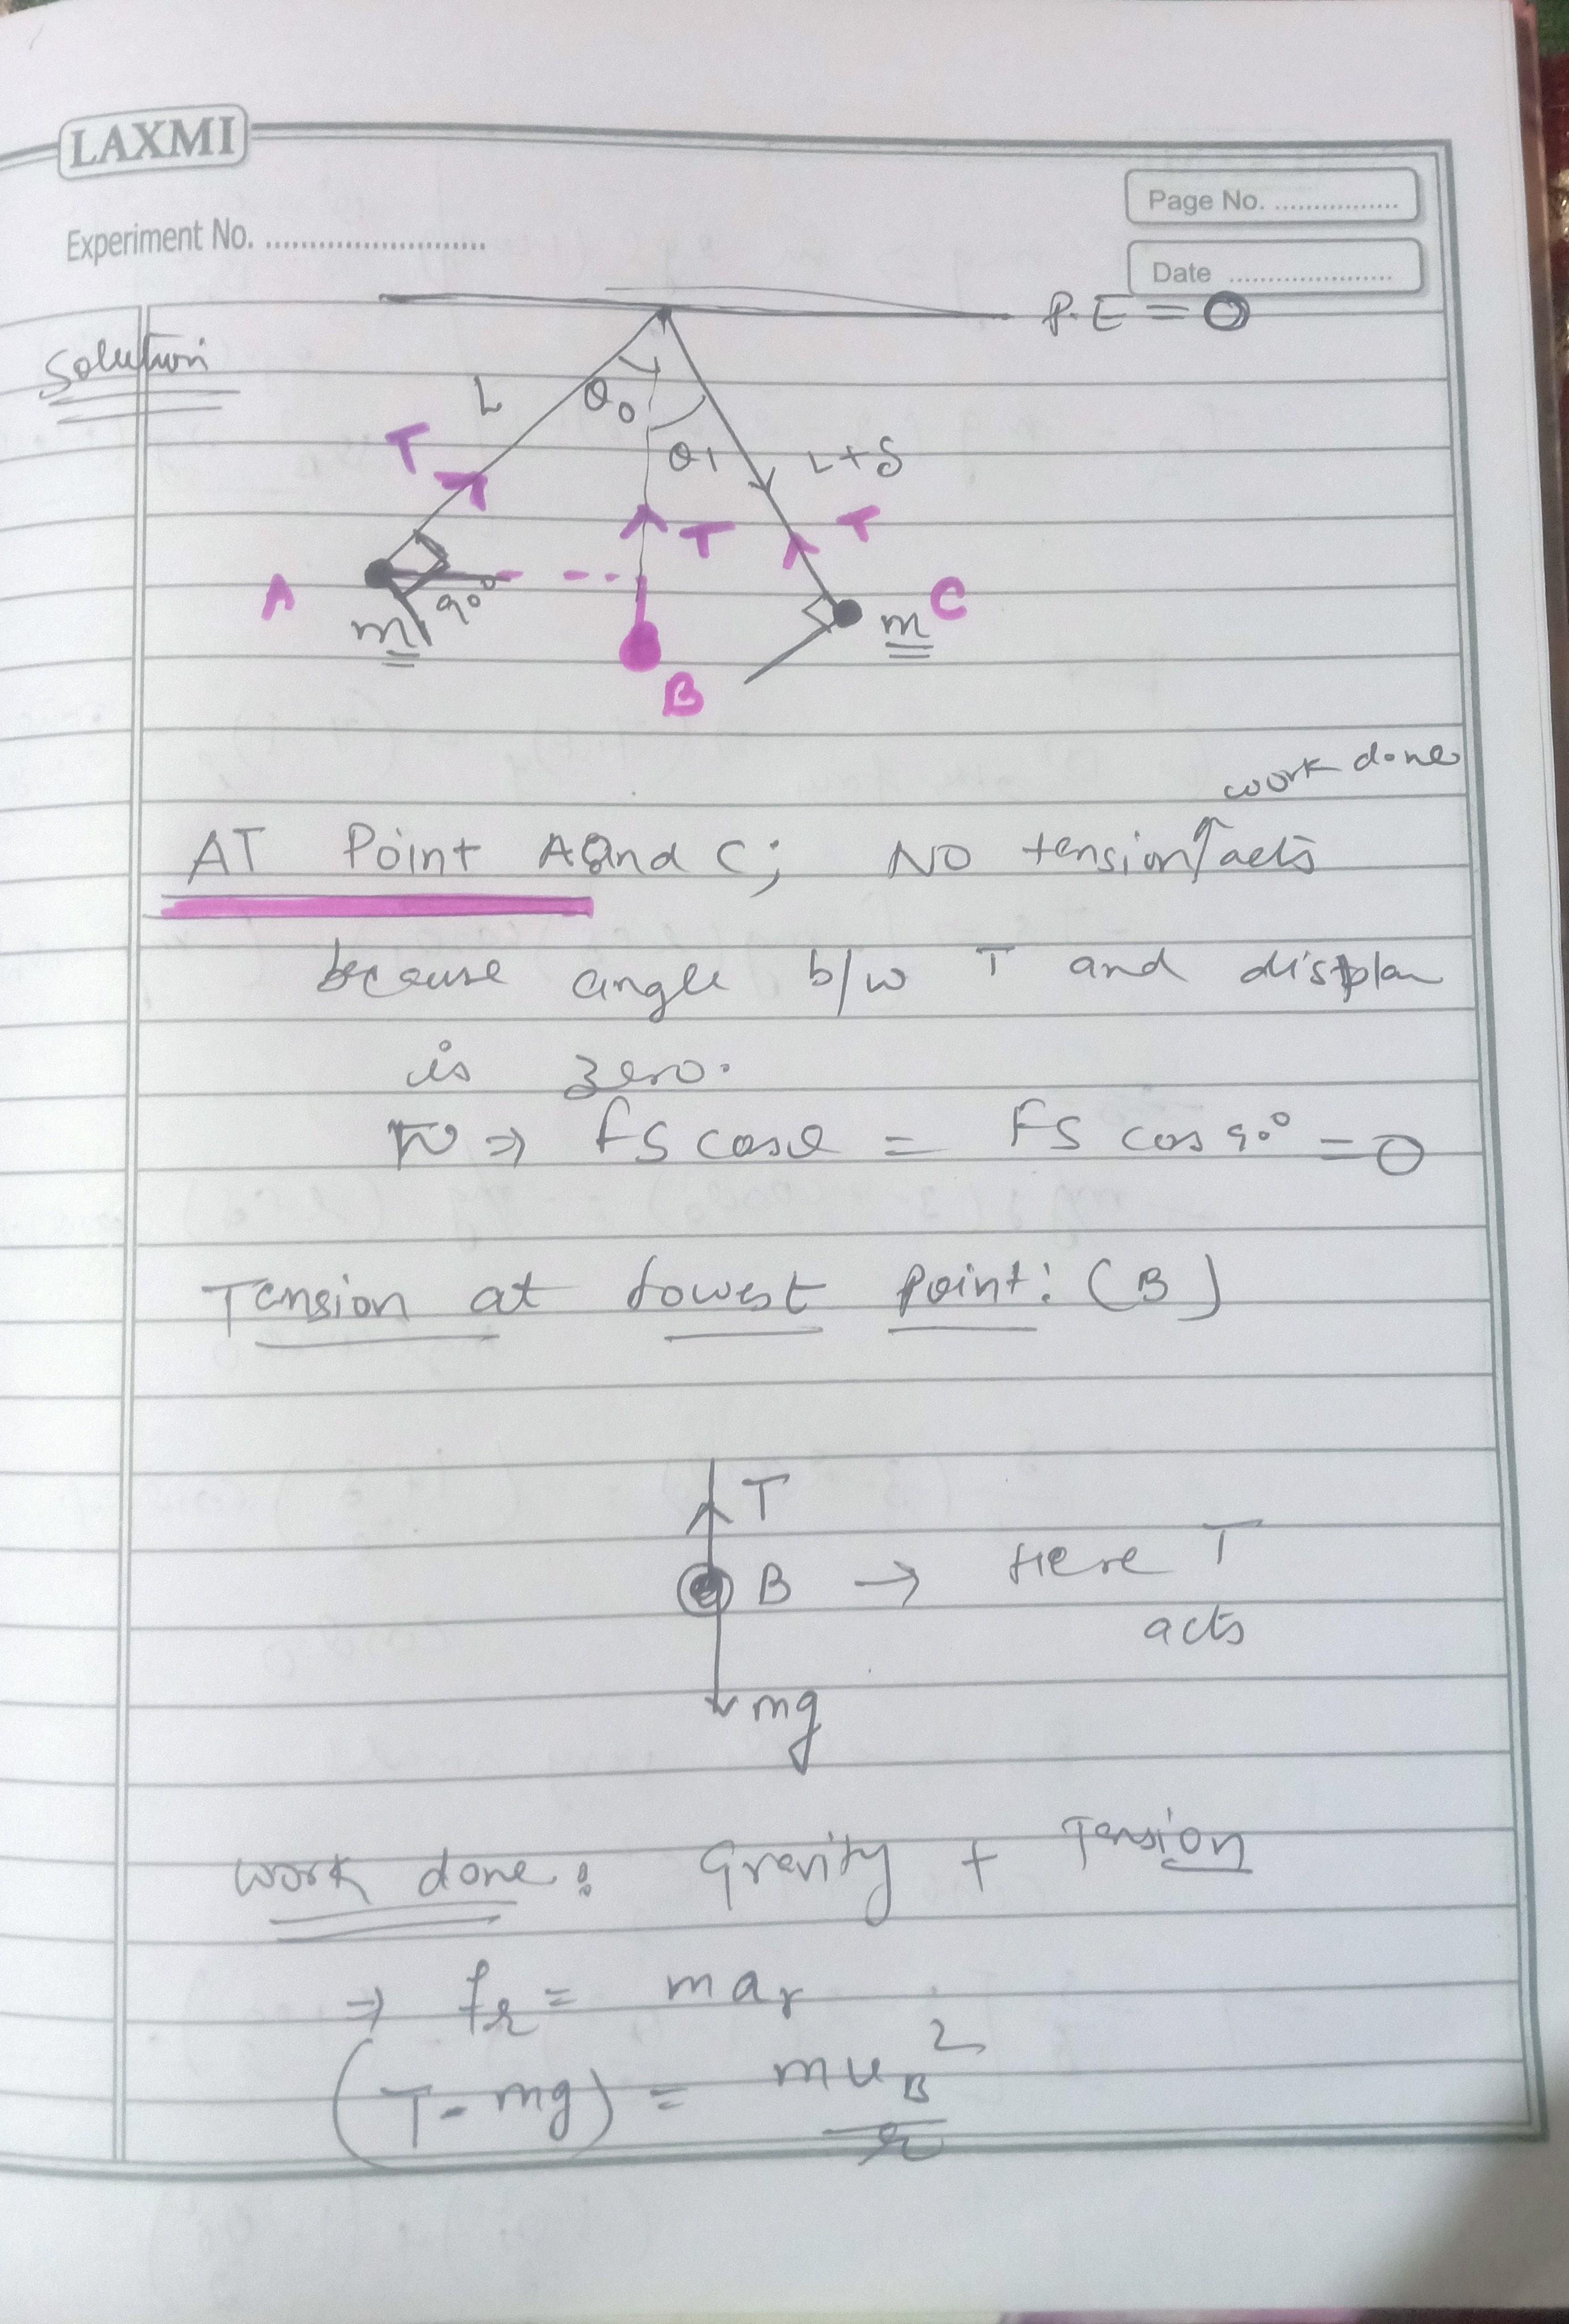 LAXMI
Page No. ................
Experiment No. ........................
Date .....................
P.E = 0
Solution
L
θ0
T
θ1
L+δ
T
T
A
90°
m
m
C
B
work done
AT Point A and C; NO tension acts
because angle b/w T and displan
is zero.
W ⇒ FS cosθ = FS cos 90° = 0
Tension at lowest Point: (B)
T
B → Here T
acts
mg
work done: Gravity + Tension
⇒ fr = mar
(T - mg) = muB²/r